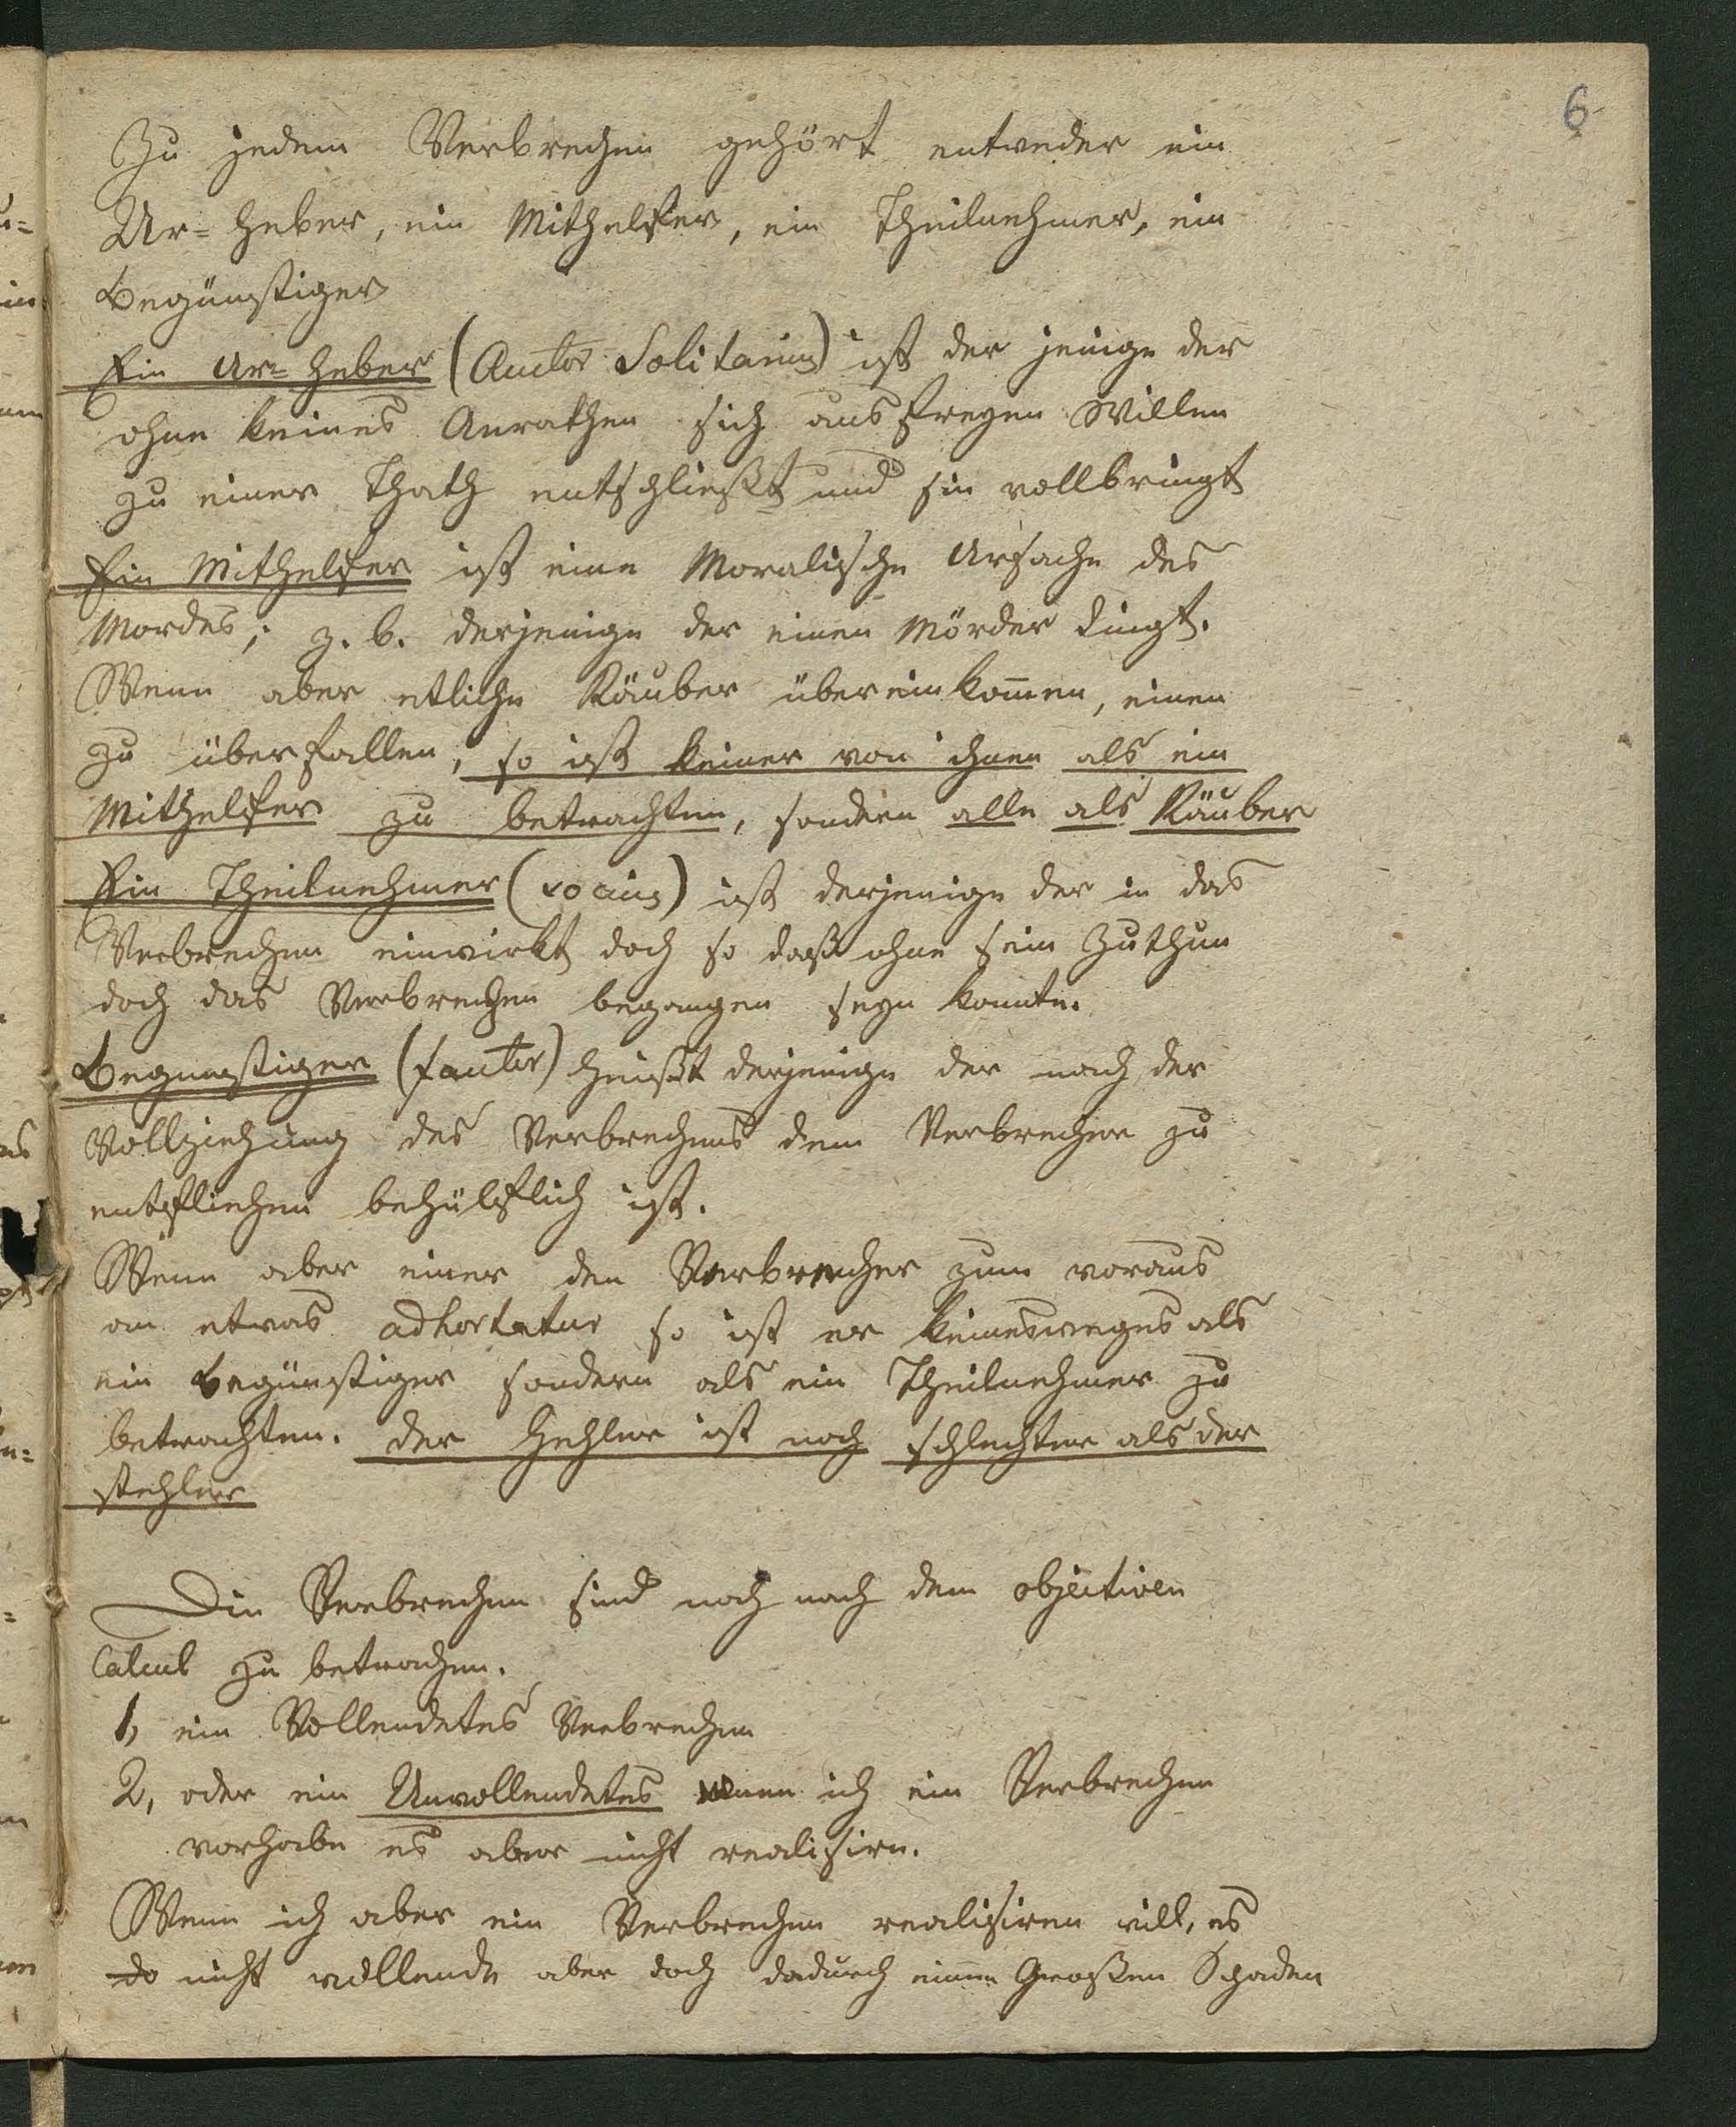 6
Zu jedem Verbrechen gehört entweder ein
Ur= heber, ein Mithelfer, ein Theilnehmer, ein
Begünstiger
Ein Ur= heber (Auctor Solitarius) ist der jenige der
ohne keines Anrathen sich aus freyen Willen
zu einer Thath entschließt und sie vollbringt
Ein Mithelfer ist eine Moralische Ursache des
Mordes; z. b. derjenige der einen Mörder dingt.
Wenn aber etliche Räuber übereinkom̄en, einen
zu überfallen, so ist keiner von ihnen als ein
Mithelfer zu betrachten, sondern alle als Räuber
Ein Theilnehmer (socius) ist derjenige der in das
Verbrechen einwirkt doch so daß ohne sein Zuthun
doch das Verbrechen begangen seyn konnte.
Begunstiger (fautor) heißt derjenige der nach der
Vollziehung des Verbrechens dem Verbrecher zu
entfliehen behülflich ist.
Wenn aber einer den Verbrecher zum voraus
an etwas adhortatur so ist er keinesweges als
ein Begünstiger sondern als ein Theilnehmer zu
betrachten. der Hehler ist noch schlechter als der
stehler
Die Verbrechen sind noch nach dem objectiven
Calcul zu betrachen.
1, ein Vollendetes Verbrechen
2, oder ein Unvollendetes wenn ich ein Verbrechen
vorhabe es aber nicht realisire.
Wenn ich aber ein Verbrechen realisiren will, es
do nicht vollende aber doch dadurch einen Großen Schaden